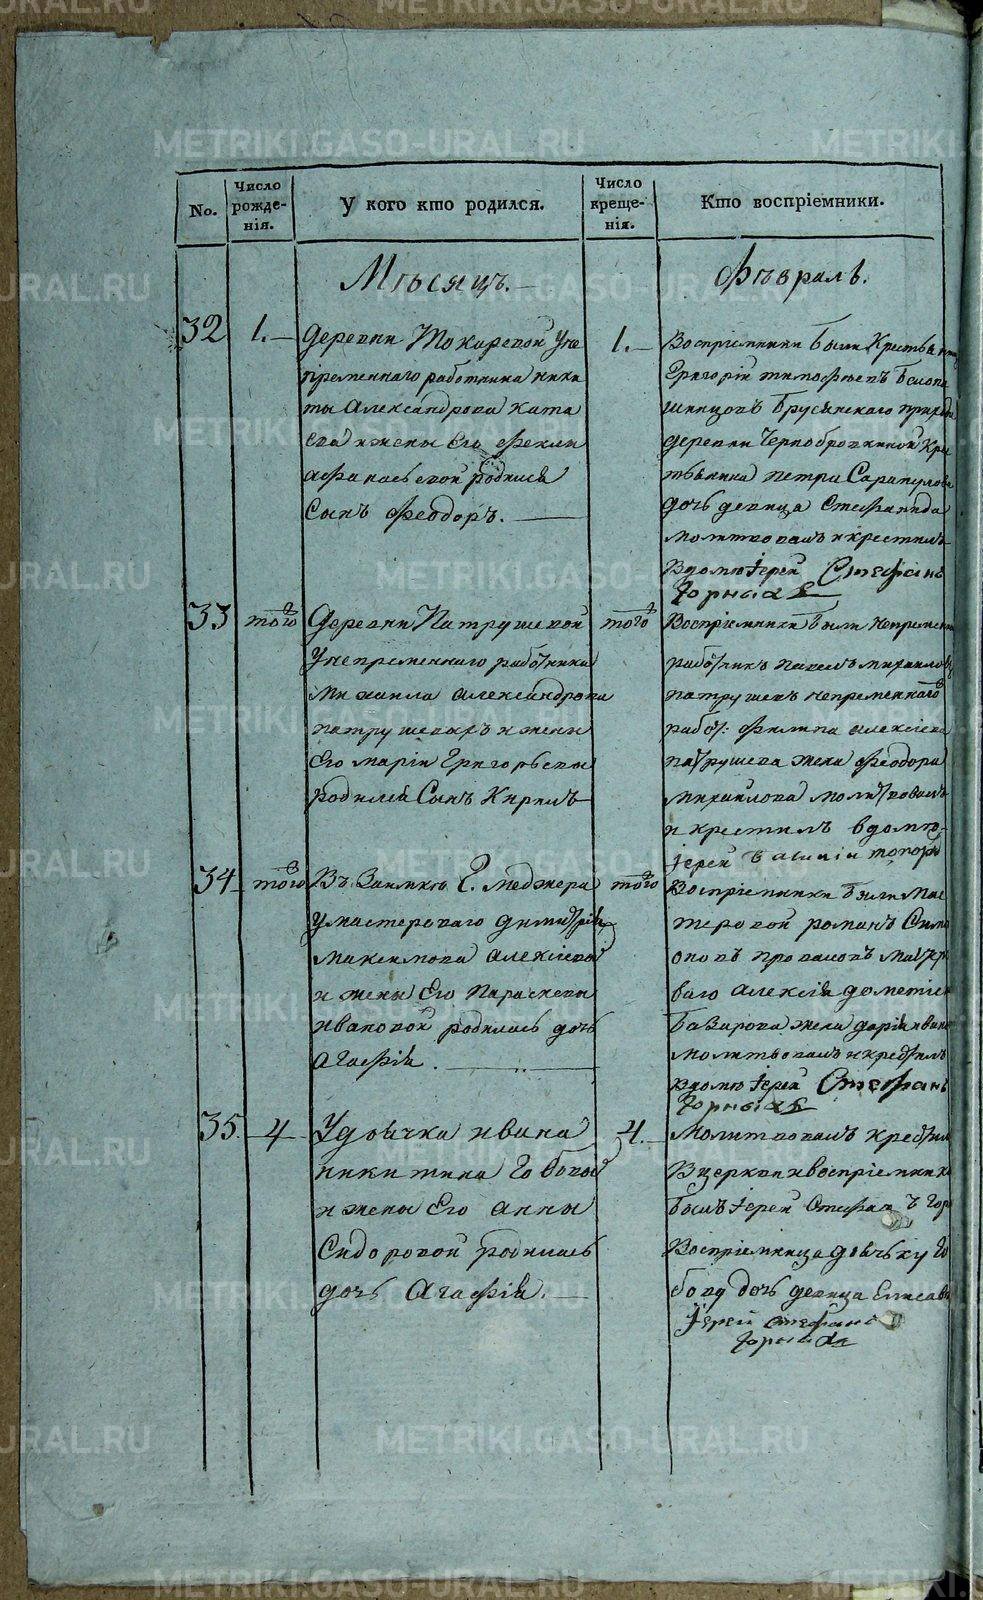 No.
Число рожде-нія.
У кого кто родился.
Число креще-нія.
Кто воспріемники.
Мѣсяцъ.
Февраль.
32
1.
деревни Токаревой уне
пременнаго работника ники
ты Александрова Ката
ева и жены Его Феклы
афанасьевой родился
Сынъ Феодоръ.
1.
Воспріемники были Крестьянинъ
Григорій тимофѣевъ
Брусянскаго прихода
деревни Чернобровкиной Кре
тьянина петра Сарапулова
дочь девица Стефанида
молитвовалъ и крестилъ
вдому іерей Стефанъ
Горныхъ
33
того
деревни Патрушевой
унепременнаго работника
михаила александрова
патрушевыхъ и жены
Его маріи Григорьевы
родился Сынъ Кирилъ
того
Воспріемники были непремен
работникъ павелъ михаиловъ
патрушевъ непременнаго
рабо: Филипа алексіева
патрушева жена Феодора
михайлова молитвовалъ
и крестилъ вдому
іерей Василій
34
того
Въ Заимкѣ Г. меджера
умастероваго димитрія
максимова алексіева
и жены Его Параскевы
ивановой родилась дочь
агафія.
того
Воспріемники были Мас
теровой романъ Сима
оновъ
ваго алексія дометіев
базарова жена дарія иван
молитвовалъ и крестилъ
вдому іерей Стефанъ
Горныхъ
35.
4
Удьячка ивана
никитина
и жены Его анны
Сидоровой родилась
дочь агафія.
4.
молитвовалъ крестил
вцеркви ивоспріемник
былъ іерей Стефанъ Гор
Воспріемница дьячку
дочь девица Елисав
іерей стефанъ
Горныхъ
METRIKI.GASO-URAL.RU